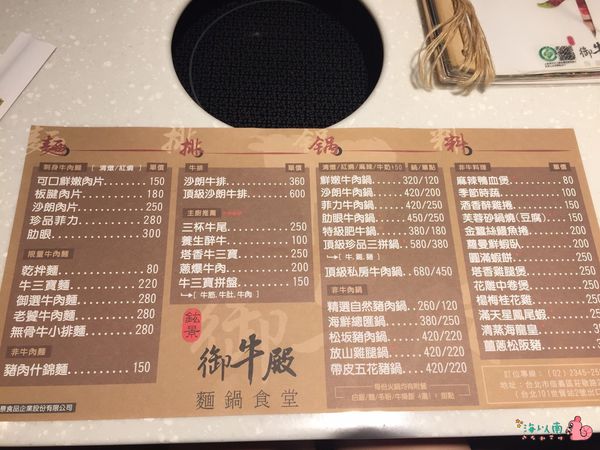 麵 排 鍋 料
刺身牛肉麵 [ 清燉/紅燒 ] 單價
可口鮮嫩肉片 150
板腱肉片 180
沙朗肉片 250
珍品菲力 280
肋眼 300
限量牛肉麵
乾拌麵 80
牛三寶麵 220
御選牛肉麵 280
老饕牛肉麵 280
無骨牛小排麵 280
非牛肉麵
豬肉什錦麵 150
景食品企業股份有限公司
牛排 單價
沙朗牛排 360
頂級沙朗牛排 600
主廚推薦
三杯牛尾 250
養生醉牛 100
塔香牛三寶 250
蔥爆牛肉 200
牛三寶拼盤 150
└ 牛筋, 牛肚, 牛肉 ┘
鉉景
御牛殿
麵鍋食堂
清燉/紅燒/麻辣/牛奶+50 鍋/單點
鮮嫩牛肉鍋 320/120
沙朗牛肉鍋 420/200
菲力牛肉鍋 450/250
肋眼牛肉鍋 450/250
特級肥牛鍋 380/180
頂級珍品三拼鍋 580/380
└ 牛, 雞, 豬 ┘
頂級私房牛肉鍋 680/450
非牛肉鍋
精選自然豬肉鍋 260/120
海鮮總匯鍋 380/180
松坂豬肉鍋 420/220
放山雞腿鍋 420/220
帶皮五花豬鍋 420/220
每份火鍋均有附餐
非牛料理 單價
麻辣鴨血煲 80
季節時蔬 100
酒香醉雞捲 150
芙蓉砂鍋燒(豆腐) 200
金蠶絲鱺魚捲 200
蘿曼鮮蝦臥
圓滿蝦餅
塔香雞腿煲
花雕中卷煲
楊梅桂花雞
滿天星鳳尾蝦
清蒸海龍皇
薑蔥松阪豬
訂位專線: (02)2345-25
地址:台北市信義區莊敬路
(台北101世貿站2號出口
海小兔